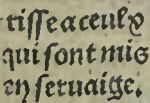 tisse a ceulx
qui sont mis
en seruaige.